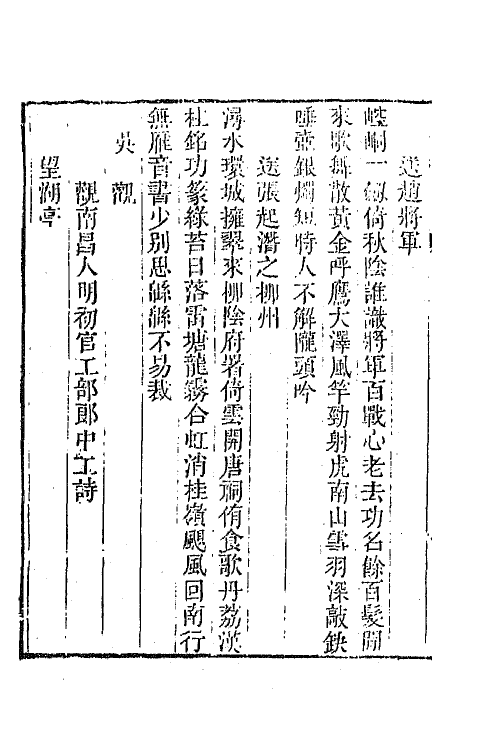 送趙將軍
崆峒一劔倚秋陰誰識將軍百戰心老去功名餘白髮閒
來歌舞散黃金呼鷹大澤風竿勁射虎南山雪羽深敲鈌
唾壺銀燭短時人不解隴頭吟
送張起潛之柳州
潯水環城擁翠來柳陰府署倚雲開唐祠侑食歌丹荔漢
柱銘功篆綠苔日落雷塘龍霧合虹消桂嶺颶風回南行
無雁音書少別思緜緜不易裁
吳觀
觀南昌人明初官工部郎中工詩
望湖亭